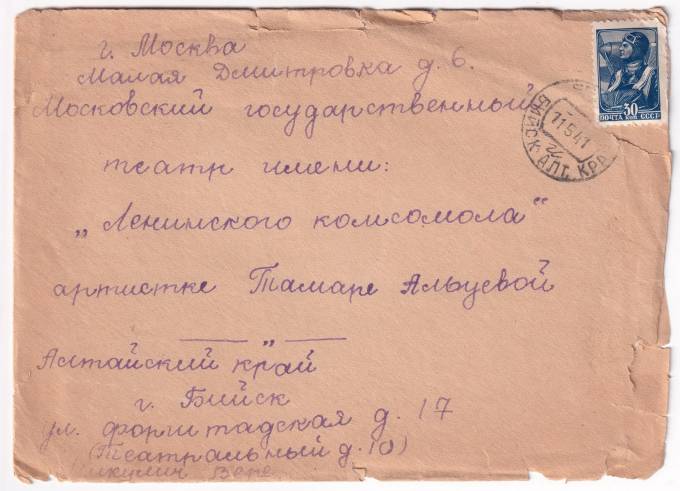 г. Москва
Малая Дмитровка д. 6.
Московский государственный
театр имени:
„Ленинского комсомола“
артистке Тамаре Альцевой
— „ —
Алтайский край
г. Бийск
ул. форштадская д. 17
(Театральный д. 10)
Вере
30
ПОЧТА КОП СССР
БИЙСК АЛТ. КРА
11541